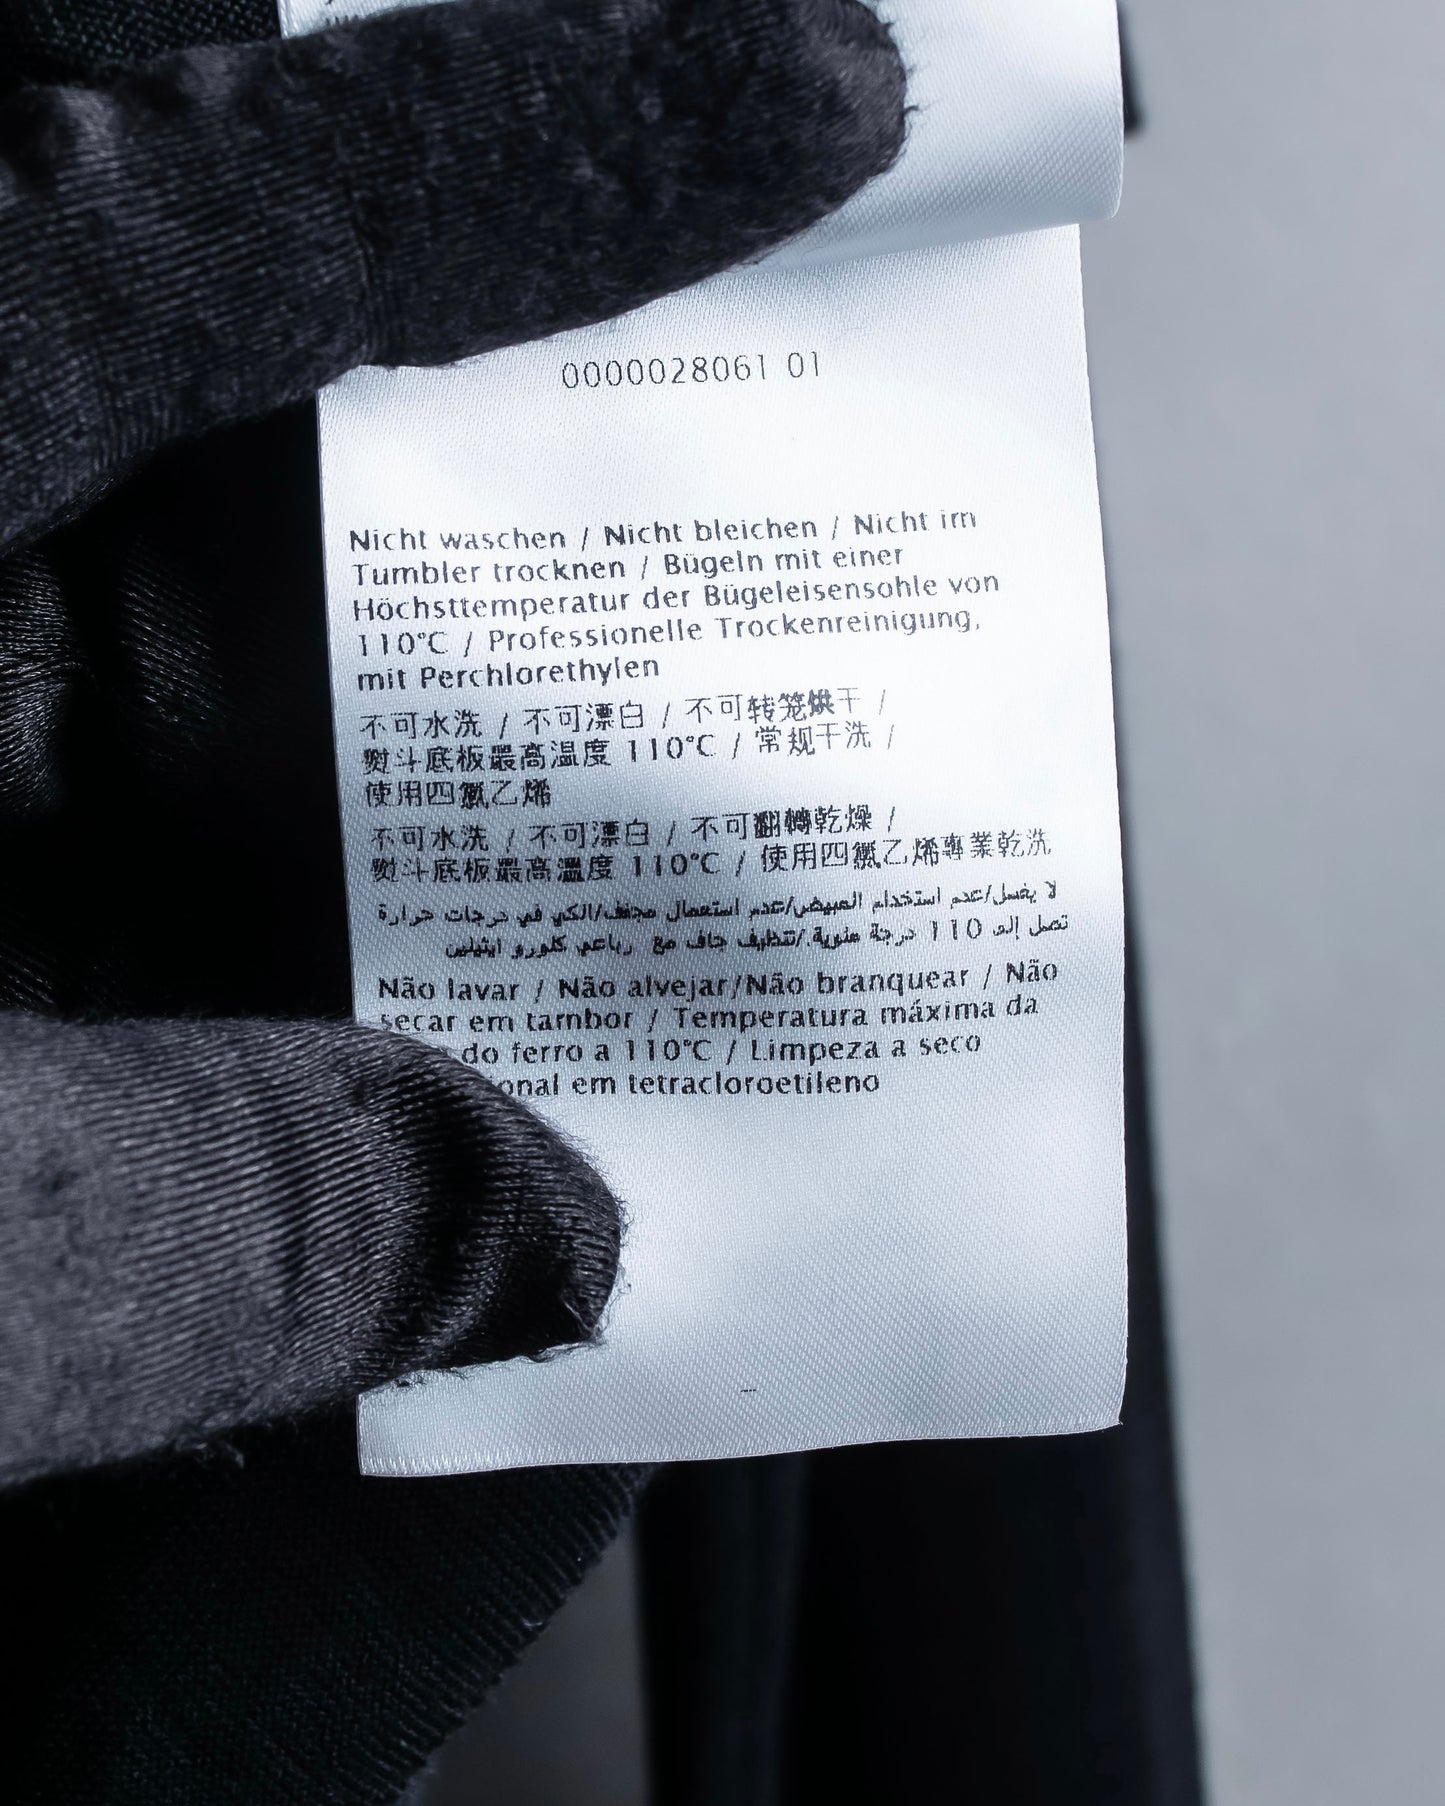 0000028061 01
Nicht waschen / Nicht bleichen / Nicht im
Tumbler trocknen / Bügeln mit einer
Höchsttemperatur der Bügeleisensohle von
110°C / Professionelle Trockenreinigung,
mit Perchlorethylen
不可水洗 / 不可漂白 / 不可转笼烘干 /
熨斗底板最高温度 110°C / 常规干洗 /
使用四氯乙烯
不可水洗 / 不可漂白 / 不可翻轉乾燥 /
熨斗底板最高溫度 110°C / 使用四氯乙烯專業乾洗
لا يغسل/عدم استخدام المبيض/عدم استعمال مجفف/الكي في درجات حرارة
تصل إلى 110 درجة مئوية./تنظيف جاف مع رباعي كلورو ايثيلين
Não lavar / Não alvejar/Não branquear / Não
secar em tambor / Temperatura máxima da
do ferro a 110°C / Limpeza a seco
onal em tetracloroetileno